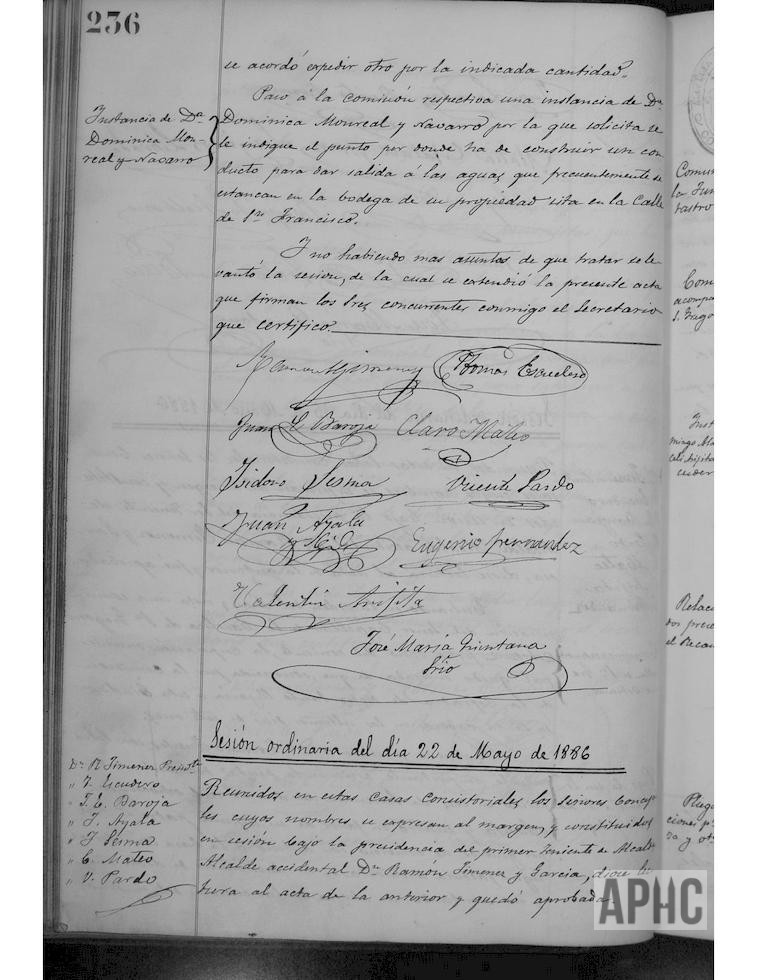 236
se acordó expedir otro por la indicada cantidad.
Instancia de Da.
Dominica Mon-
real y Navarro
Paso á la comisión respectiva una instancia de Da.
Dominica Monreal y Navarro por la que solicita se
le indique el punto por donde ha de construir un con
ducto para dar salida á las aguas que frecuentemente se
estancan en la bodega de su propiedad sita en la Calle
de Sn. Francisco.
Y no habiendo mas asuntos de que tratar se le
vantó la sesion, de la cual se extendió la presente acta
que firman los Sres. concurrentes conmigo el Secretario
que certifico.
Ramon Jimenez Tomás Escudero
Juan E. Baroja Claro Mateo
Isidoro Sesma Vicente Pardo
Juan Ayala
Eugenio Fernandez
Valentin
José María Quintana
Srio
Sesión ordinaria del día 22 de Mayo de 1886
Dn. R. Jimenez Presidte.
" T. Escudero
" J. E. Baroja
" J. Ayala
" I. Sesma
" C. Mateo
" V. Pardo
Reunidos en estas Casas Consistoriales los señores Conceja
les cuyos nombres se expresan al margen, y constituidos
en sesión bajo la presidencia del primer Teniente de Alcalde
Alcalde accidental Dn. Ramón Jimenez y Garcia, diose lec
tura al acta de la anterior y quedó aprobada.
APHC